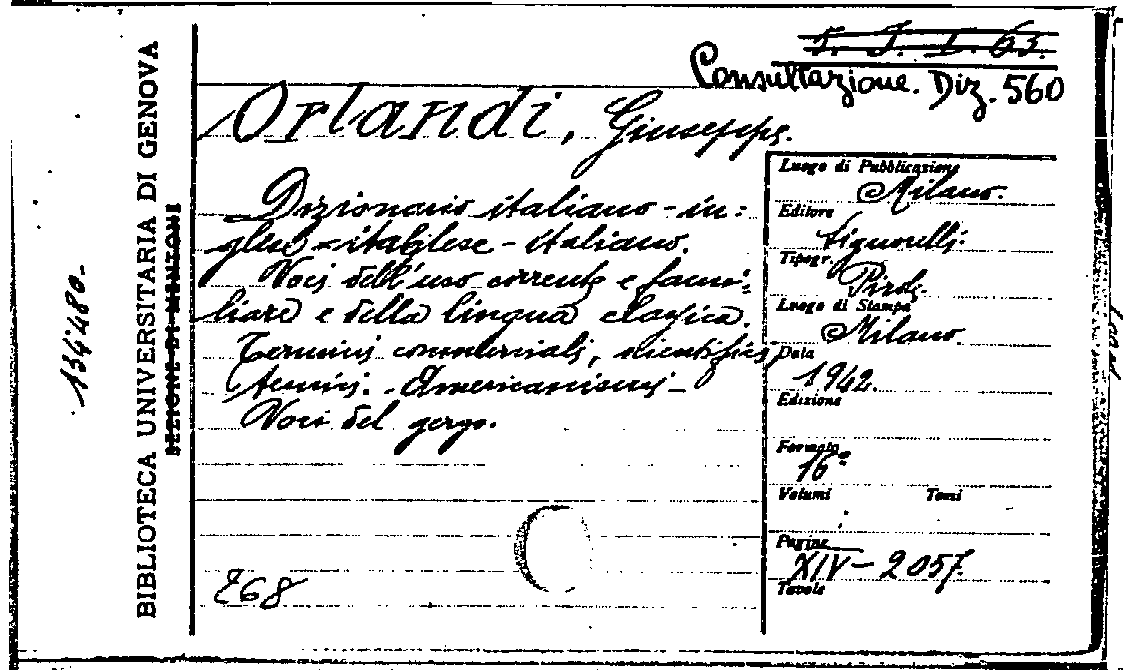 5. J. I. 63.
Consultazione. Diz. 560
Orlandi, Giuseppe.
Dizionario italiano-in:
glese - italiano.
Voci dell'uso corrente e fami:
liare e della lingua classica.
Termini commerciali, scientifici,
tecnici. - Americanismi -
Voci del gergo.
268
Luogo di Pubblicazione
Milano.
Editore
Signorelli.
Tipogr.
Pirola.
Luogo di Stampa
Milano.
Data
1942.
Edizione
Formato
16°
Volumi Tomi
Pagine
XIV - 2057.
Tavole
BIBLIOTECA UNIVERSITARIA DI GENOVA
SEZIONE DI MENTONE
134480.